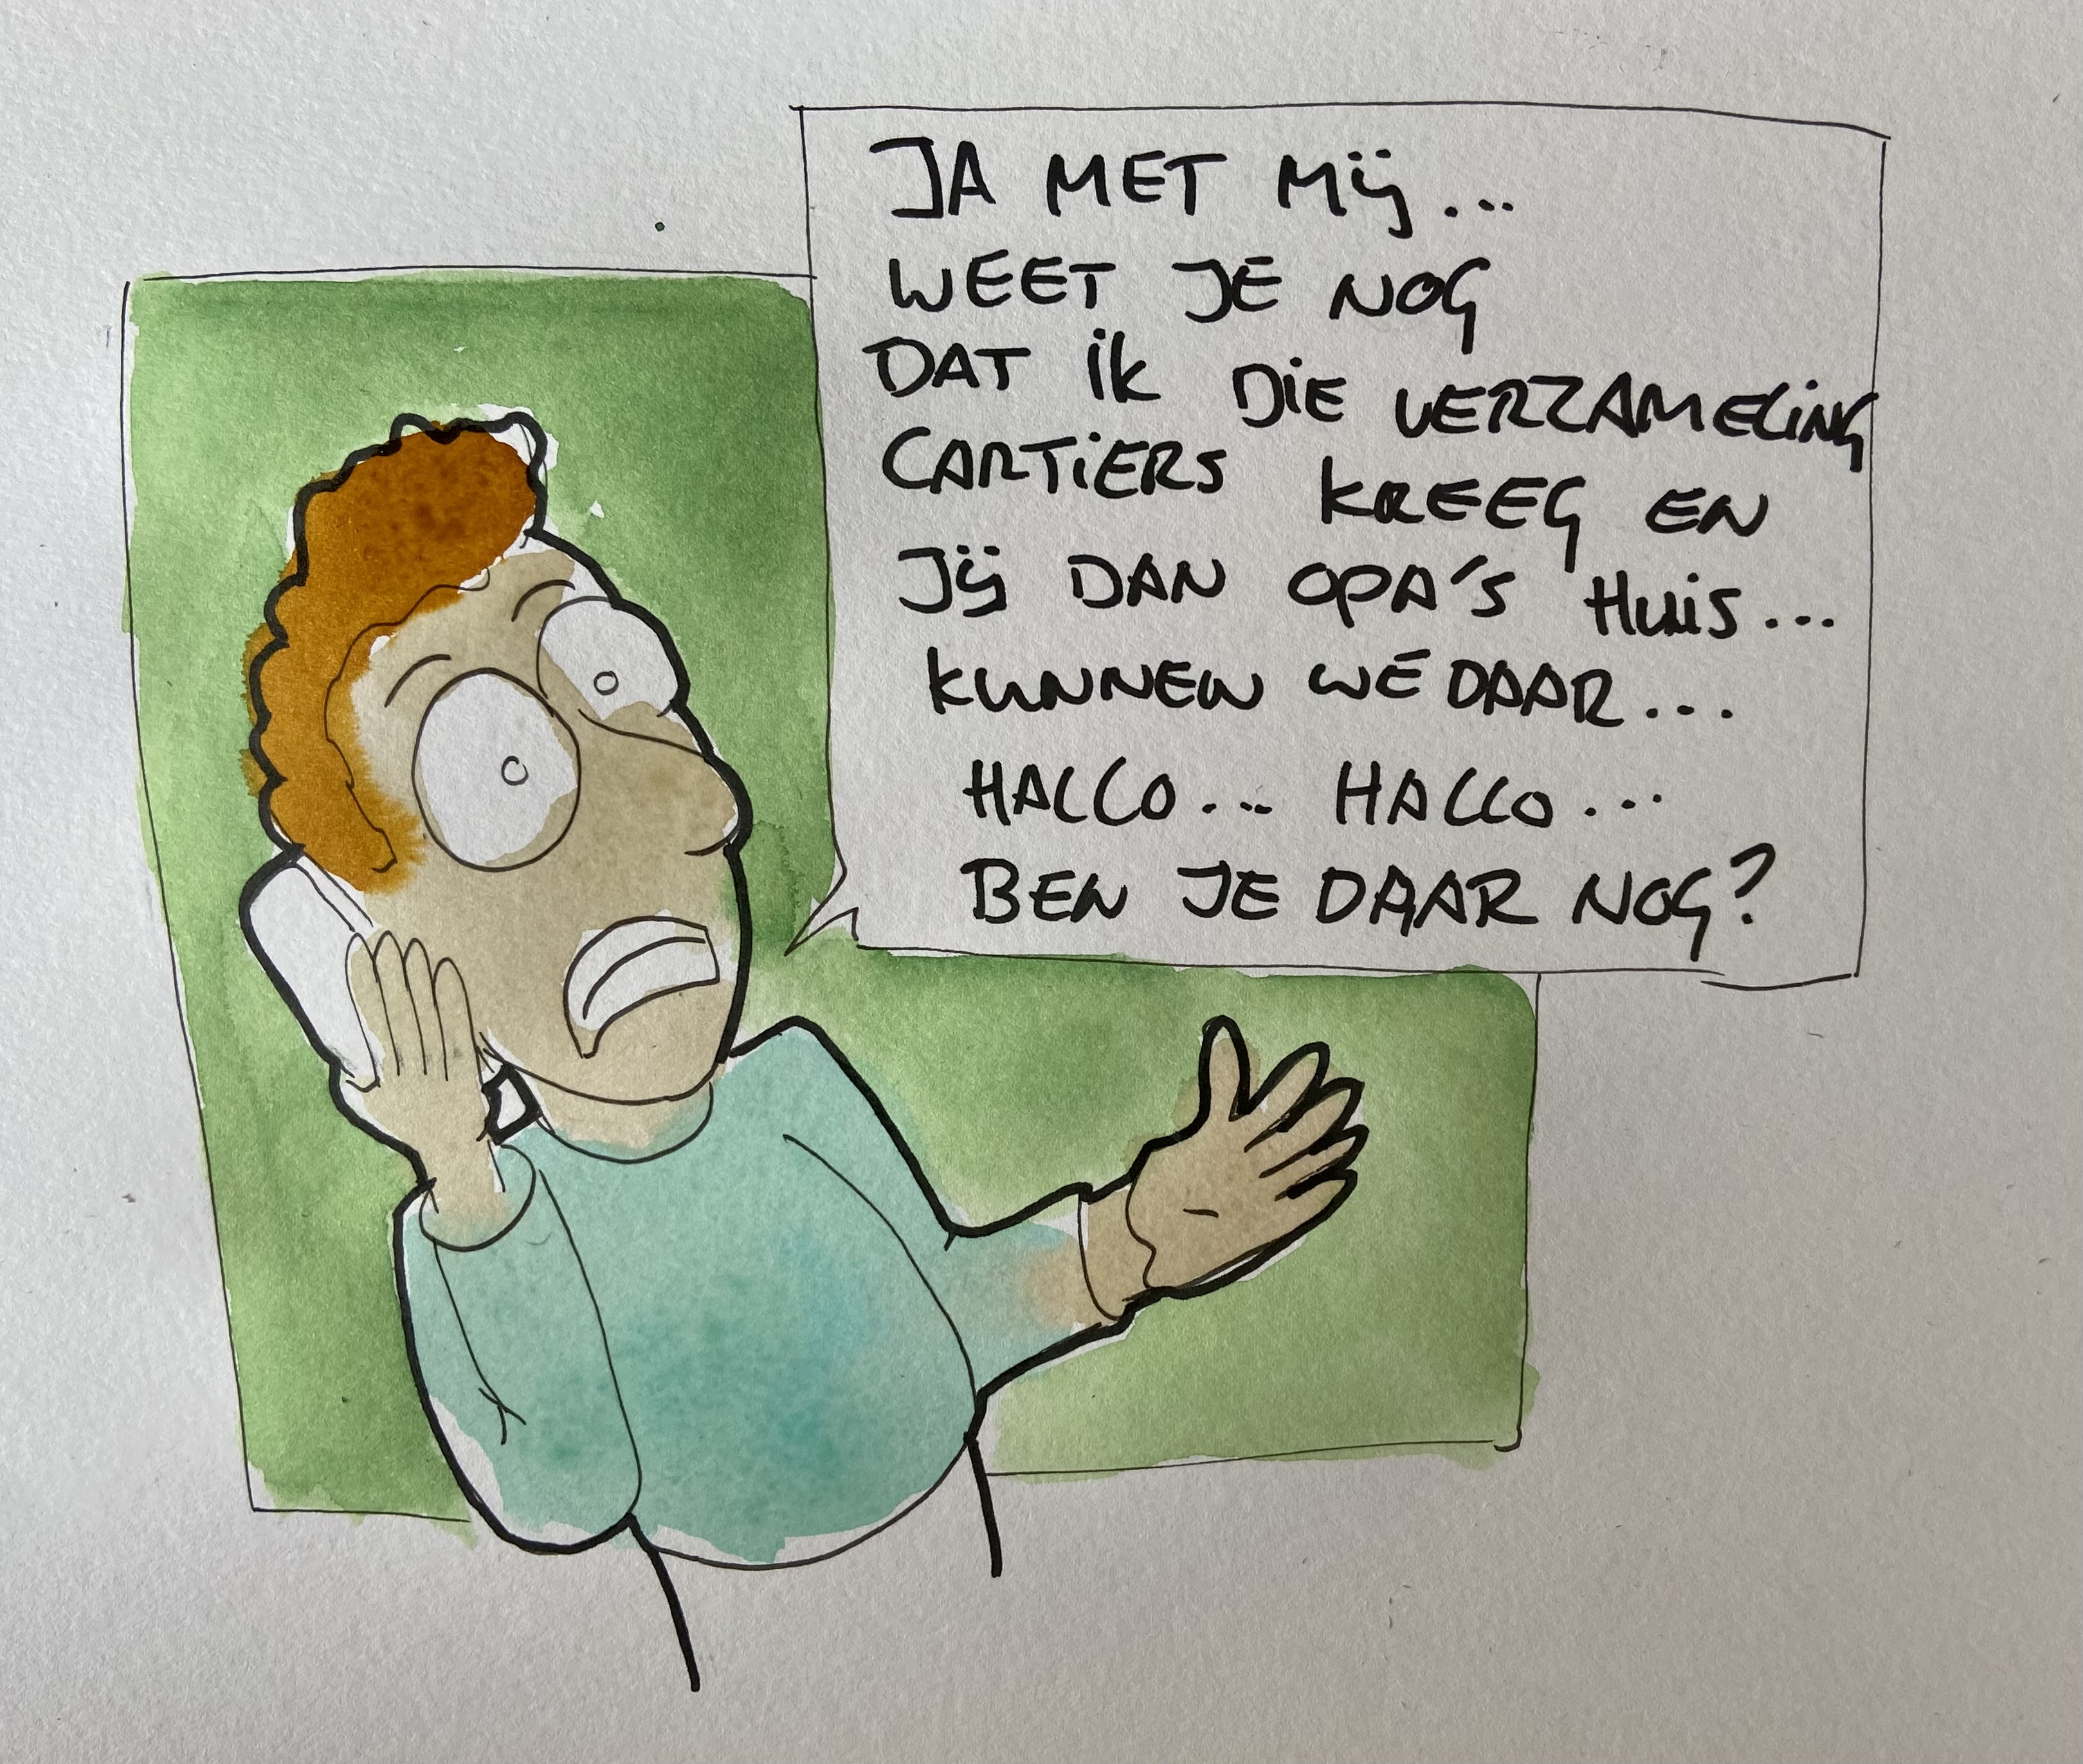 JA MET MIJ...
WEET JE NOG
DAT IK DIE VERZAMELING
CARTIERS KREEG EN
JIJ DAN OPA'S HUIS...
KUNNEN WE DAAR...
HALLO... HALLO...
BEN JE DAAR NOG?